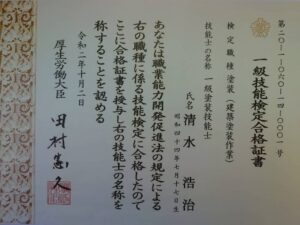 第二〇-一-〇六〇-一四-〇〇〇一号
一級技能検定合格証書
検定職種 塗装（建築塗装作業）
技能士の名称 一級塗装技能士
氏名 清水 浩治
昭和四十四年七月十七日生
あなたは職業能力開発促進法の規定による
右の職種に係る技能検定に合格したので
ここに合格証書を授与し右の技能士の名称を
称することを認める
令和二年十月二日
厚生労働大臣 田村憲久